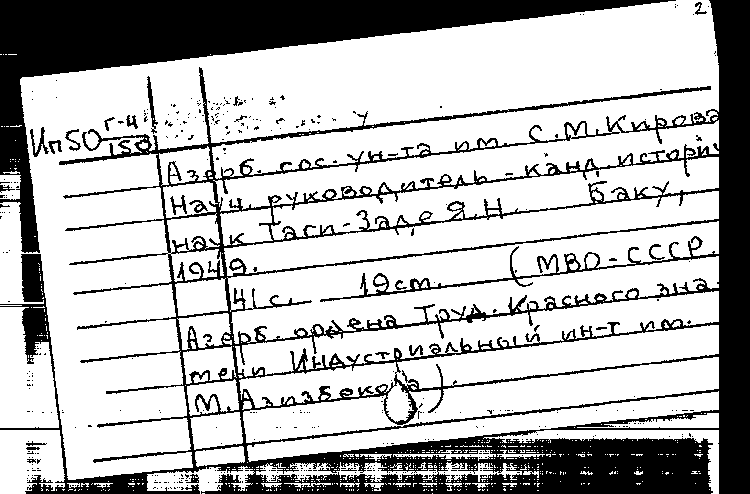 2
Ип50 Г-4/150
Азерб. гос. ун-та им. С.М.Кирова
Науч. руководитель - канд. истори
наук Таги-Заде Я.Н. Баку,
1949.
41 с. 19см. (МВО-СССР.
Азерб. ордена Труд. Красного зна-
мени Индустриальный ин-т им.
М. Азизбекова).